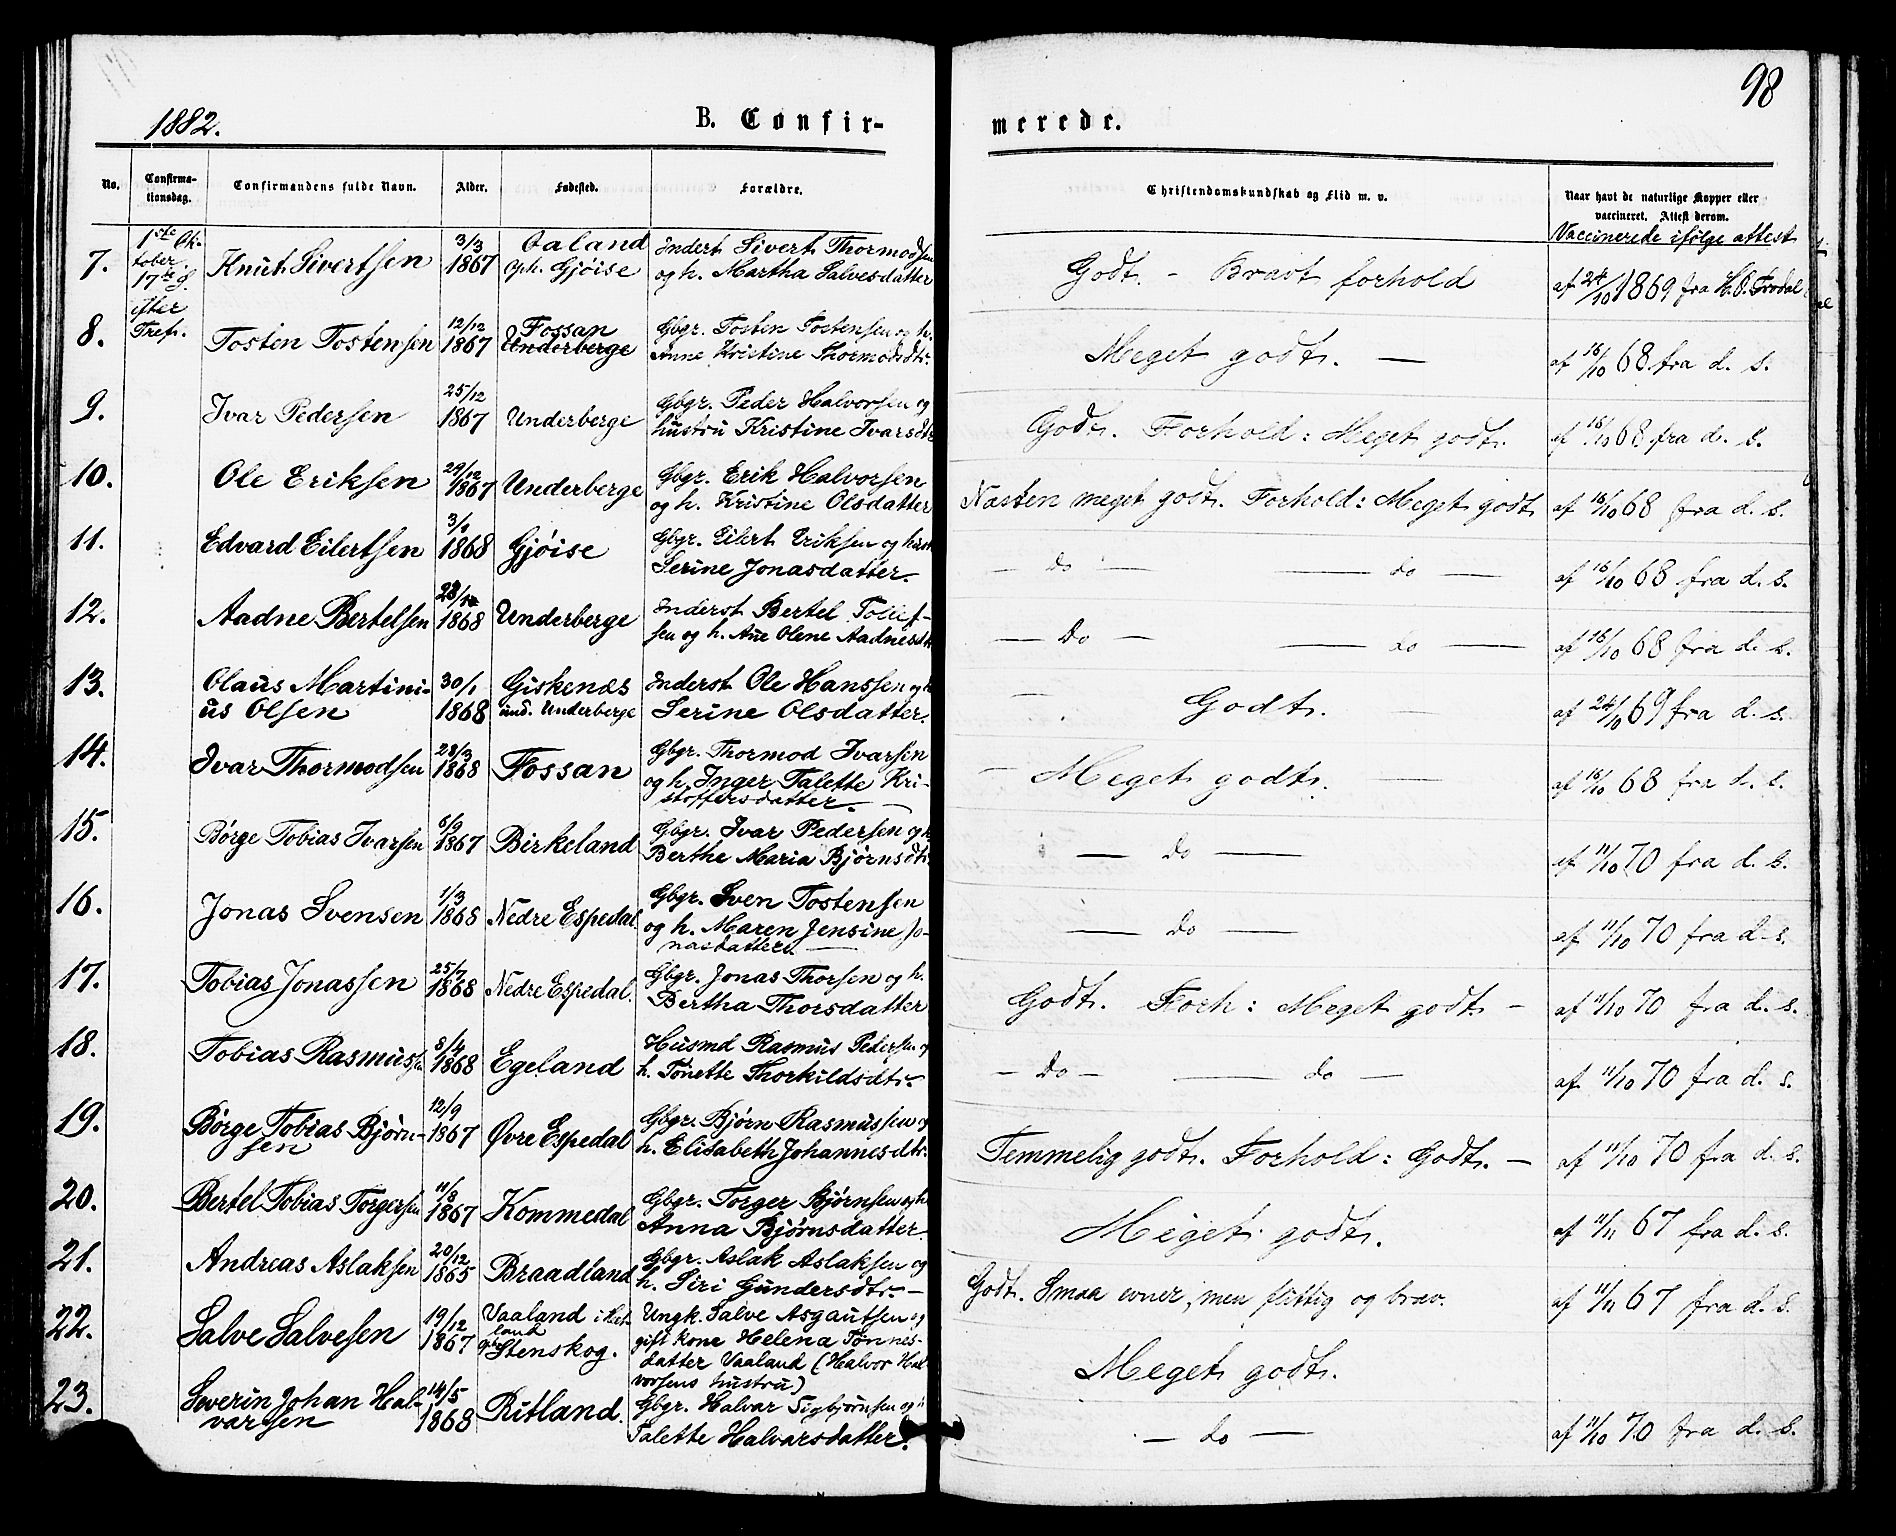 98
1882.
B. Confir-
merede.
No.
Confirma-
tionsdag.
Confirmandens fulde Navn.
Alder.
Fødested.
Forældre.
Christendomskundskab og Flid m. v.
Naar havt de naturlige Kopper eller
vaccineret. Attest derom.
Vaccinerede ifølge attest
1ste Ok-
tober
17de S.
efter
Tref.
7.
Knut Sivertsen
3/3
1867
Aaland
Oph. Gjöise
Inderst Sivert Thormodsen
og h. Martha Salvesdatter
Godt. - Bravt forhold
af 24/10 1869 fra
8.
Tosten Tostensen
12/12
1867
Fossan
Underberge
Gbgr. Tosten Tostensen og h.
Anne Kristine Thormodsdtr.
Meget godt. —
af 16/10 68 fra d. s.
9.
Ivar Pedersen
25/12
1867
Underberge
Gbgr. Peder Halvorsen og
hustru Kristine Ivarsdtr
Godt. Forhold: Meget godt.
af 16/10 68 fra d. s.
10.
Ole Eriksen
29/12
1867
Underberge
Gbgr. Erik Halvorsen
og h. Kristine Olsdatter
Næsten meget godt. Forhold: Meget godt
af 16/10 68 fra d. s.
11.
Edvard Eilertsen
3/1
1868
Gjöise
Gbgr. Eilert Eriksen og hust
Serine Jonasdatter.
- do — — do —
af 16/10 68 fra d. s.
12.
Aadne Bertelsen
1868
Underberge
Inderst Bertel Tollef-
sen og h. Ane Olene Aadnesdtr
— do — — do —
af 16/10 68 fra d. s.
13.
Olaus Martini-
us Olsen
30/1
1868
Giskenæs
und. Underberge
Inderst Ole Hanssen og h
Serine Olsdatter.
— Godt. —
af 24/10 69 fra d. s.
14.
Ivar Thormodsen
28/3
1868
Fossan
Gbgr. Thormod Ivarsen
og h. Inger Talette Kri-
stoffersdatter. —
— Meget godt. —
af 16/10 68 fra d. s.
15.
Børge Tobias Ivarsen
6/9
1867
Birkeland
Gbgr. Ivar Pedersen og h
Berthe Maria Bjørnsdtr.
— do —
af 11/10 70 fra d. s.
16.
Jonas Svensen
1/3
1868
Nedre Espedal.
Gbgr. Sven Tostensen
og h. Maren Jensine Jo-
nasdatter. —
— do —
af 11/10 70 fra d. s.
17.
Tobias Jonassen
25/7
1868
Nedre Espedal.
Gbgr. Jonas Thorsen og h.
Bertha Thorsdatter
Godt. Forh: Meget godt. -
af 11/10 70 fra d. s.
18.
Tobias Rasmussen
8/4
1868
Egeland
Husmd Rasmus Pedersen og
h. Tonette Thorkildsdtr.
- do - — do —
af 11/10 70 fra d. s.
19.
Börge Tobias Bjørn-
sen
12/9
1867
Øvre Espedal
Gbgr. Bjørn Rasmussen og
h. Elisabeth Johannesdtr.
Temmelig godt. Forhold: Godt. —
af 11/10 70 fra d. s.
20.
Bertel Tobias Torgersen
11/8
1867
Kommedal
Gbgr. Torger Bjørnsen og h
Anna Bjørnsdatter
Meget godt.
af 11/11 67 fra d. s.
21.
Andreas Aslaksen
20/12
1865
Braadland
Gbgr. Aslak Aslaksen og
h. Siri Gundersdtr. —
Godt. Smaa evner, men flittig og brav.
af 11/11 67 fra d. s.
22.
Salve Salvesen
19/12
1867
Vaaland i Het-
land
oph. Stenskog.
Ungk. Salve Asgautsen og
gift kone Helena Tønnes-
datter Vaaland (Halvor Hal-
vorsens hustru)
Meget godt.
23.
Severin Johan Hal-
varsen
14/5
1868
Ritland.
Gbgr. Halvar Sigbjørnsen og h
Talette Halvarsdatter.
— do —
af 11/10 70 fra d. s.